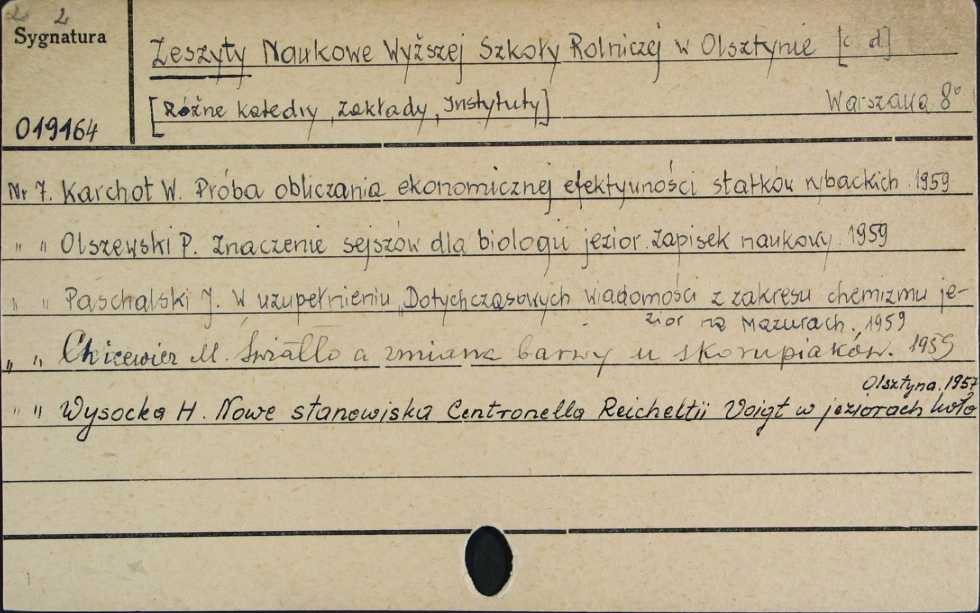 2 2
Sygnatura
Zeszyty Naukowe Wyższej Szkoły Rolniczej w Olsztynie [c d]
[Różne katedry, zakłady, Instytuty] Warszawa 8°
019164
Nr 7. Karchot W. Próba obliczania ekonomicznej efektywności statków rybackich. 1959
" " Olszewski P. Znaczenie sejszów dla biologii jezior. Zapisek naukowy. 1959
" " Paschalski J. W uzupełnieniu „Dotychczasowych wiadomości z zakresu chemizmu je-
zior na Mazurach. 1959
" " M. Światło a zmiana barwy u skorupiaków. 1959
Olsztyna. 1957
" " Wysocka H. Nowe stanowiska Centronella Reicheltii Voigt w jeziorach koło